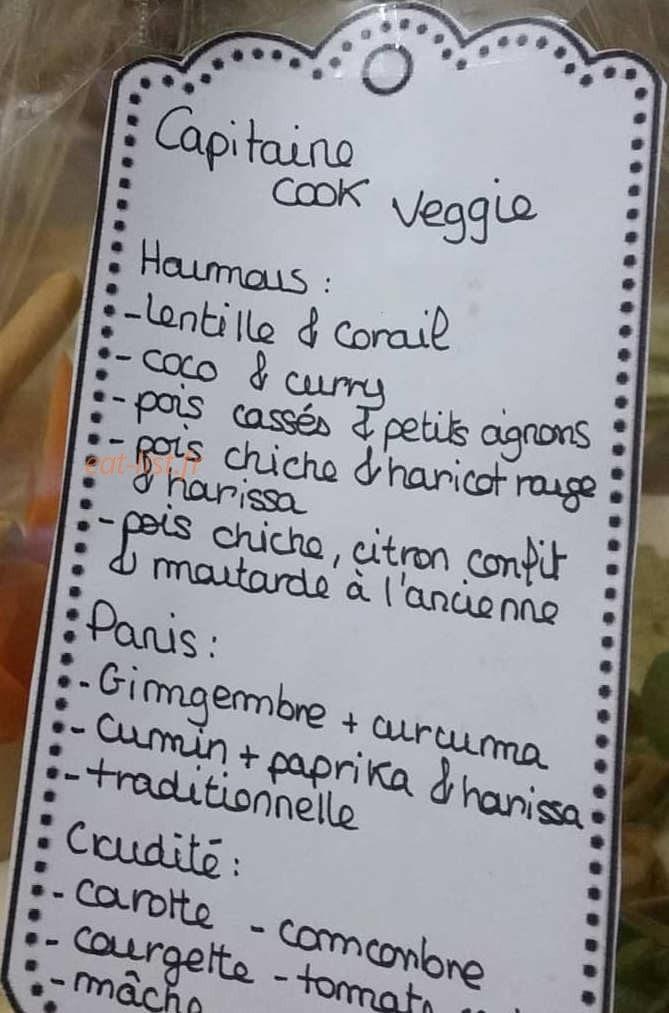 Capitaine
COOK Veggie
Houmous :
- lentille & corail
- coco & curry
- pois cassés & petits oignons
- pois chiche & haricot rouge
& harissa
- pois chiche, citron confit
& moutarde à l'ancienne
Panis :
- Gimgembre + curcuma
- cumin + paprika & harissa
- traditionnelle
Crudité :
- carotte - comcombre
- courgette - tomate
- mâche
eat-list.fr